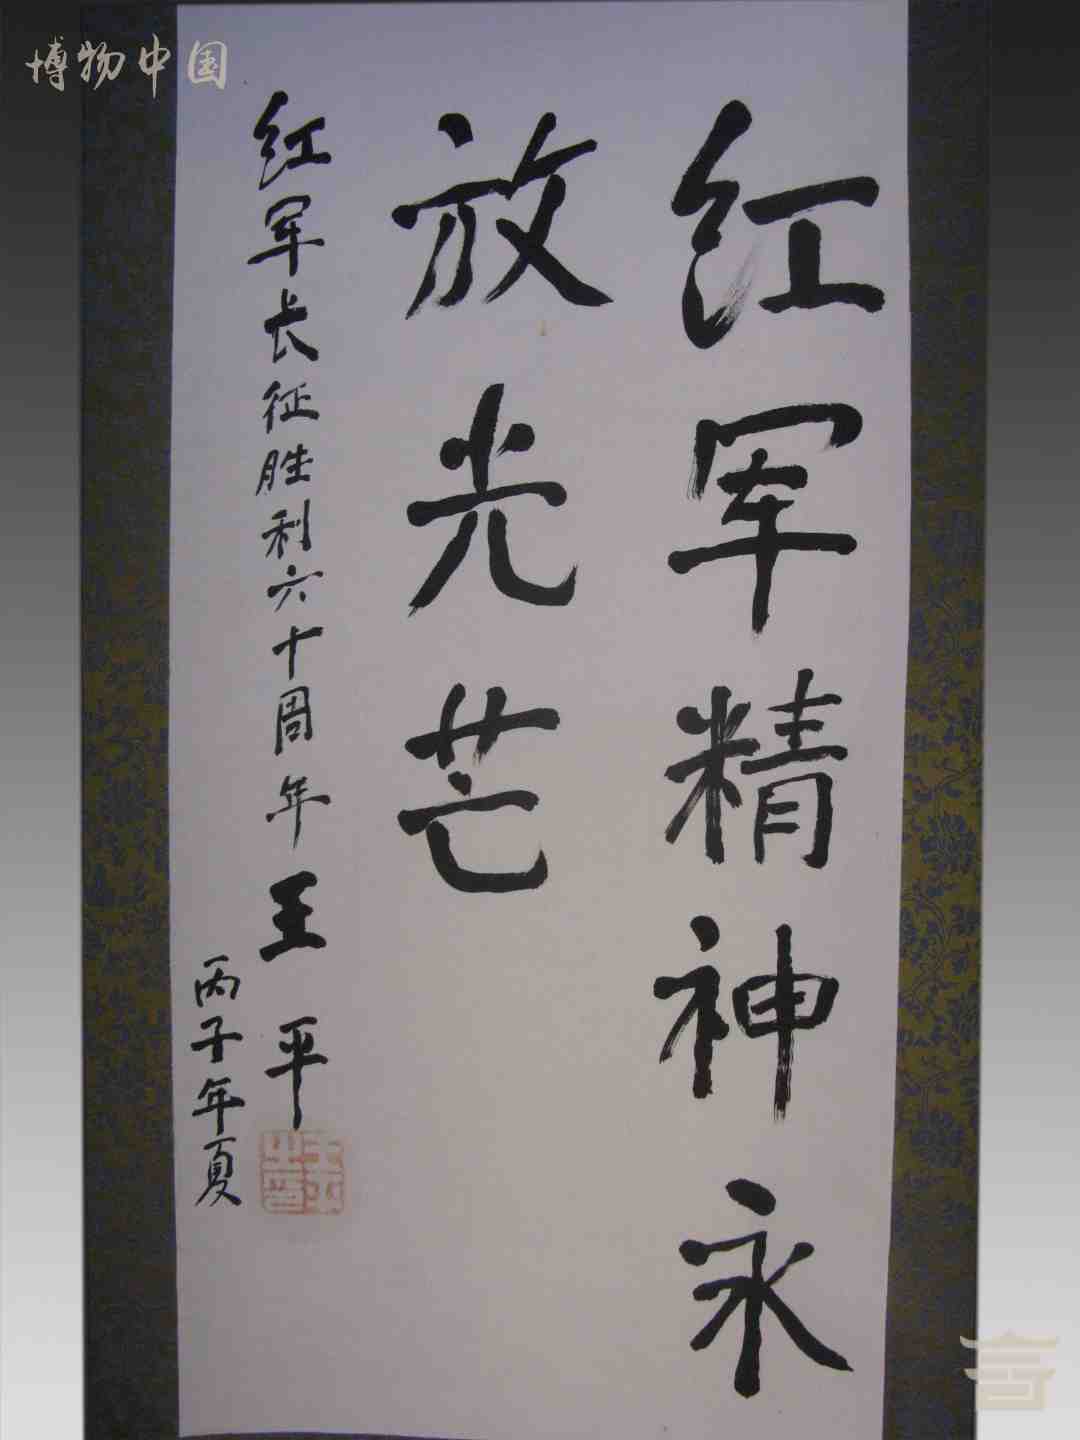 博物中国
红军精神永
放光芒
红军长征胜利六十周年 王平
丙子年夏